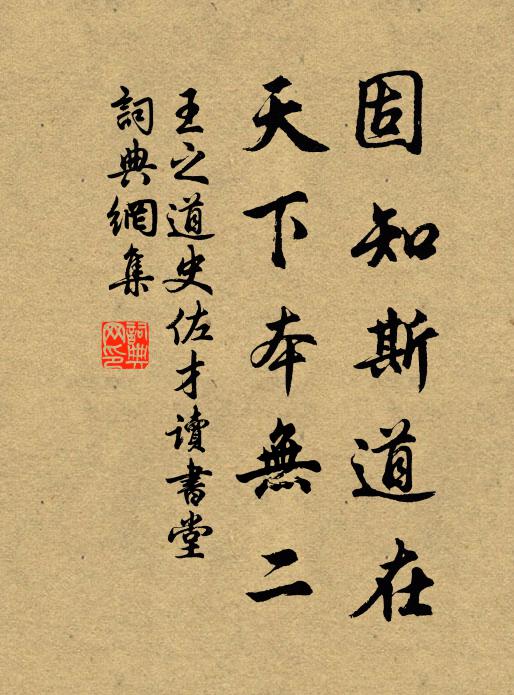 固知斯道在
天下本無二
王之道史佐才讀書堂
詞典網集
詞典网印